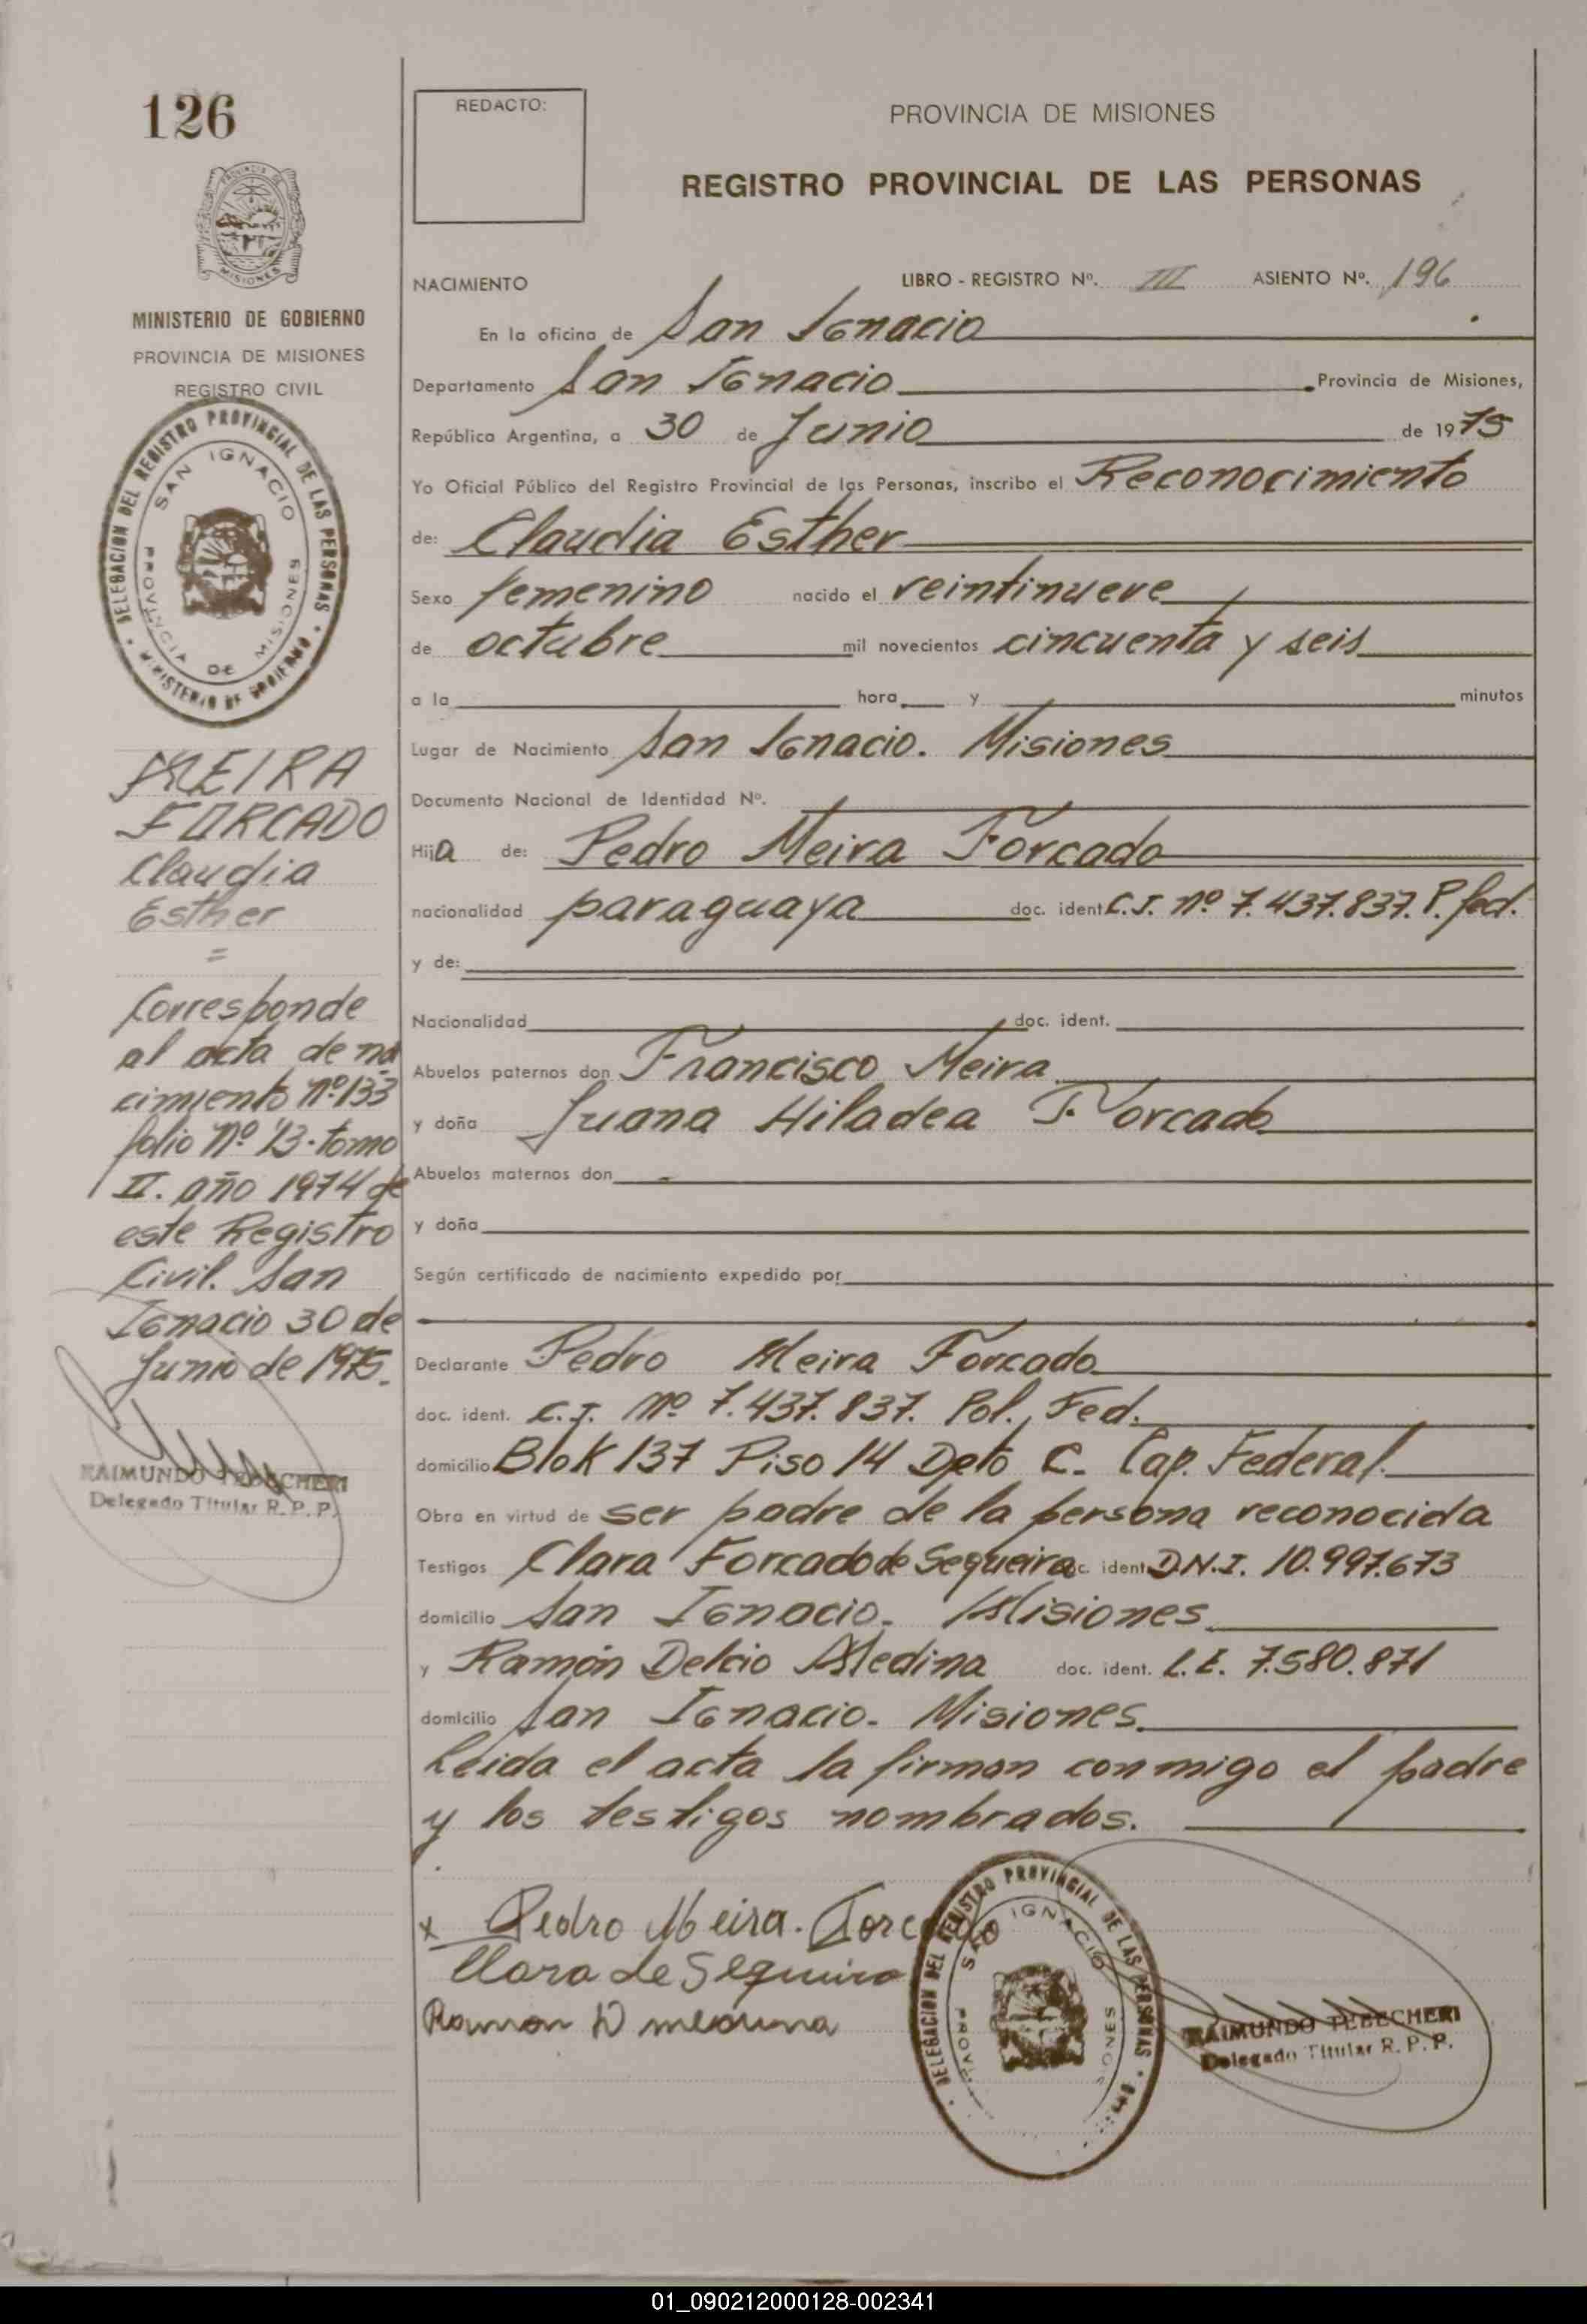 126
MINISTERIO DE GOBIERNO
PROVINCIA DE MISIONES
REGISTRO CIVIL
DELEGACION DEL REGISTRO PROVINCIAL DE LAS PERSONAS
MINISTERIO DE GOBIERNO
SAN IGNACIO
PROVINCIA DE MISIONES
MEIRA
FORCADO
Claudia
Esther
=
Corresponde
al acta de na
cimiento nº 133
folio nº 13. tomo
II. año 1974 de
este Registro
Civil. San
Ignacio 30 de
Junio de 1975.
RAIMUNDO TEBECHERI
Delegado Titular R. P. P.
REDACTO:
PROVINCIA DE MISIONES
REGISTRO PROVINCIAL DE LAS PERSONAS
NACIMIENTO LIBRO - REGISTRO Nº. III ASIENTO Nº. 196
En la oficina de San Ignacio
Departamento San Ignacio Provincia de Misiones,
República Argentina, a 30 de Junio de 1975
Yo Oficial Público del Registro Provincial de las Personas, inscribo el Reconocimiento
de: Claudia Esther
Sexo femenino nacido el veintinueve
de octubre mil novecientos cincuenta y seis
a la hora y minutos
Lugar de Nacimiento San Ignacio. Misiones
Documento Nacional de Identidad Nº.
Hija de: Pedro Meira Forcado
nacionalidad paraguaya doc. ident. C.I. nº 7.437.837. P. fed.
y de:
Nacionalidad doc. ident.
Abuelos paternos don Francisco Meira
y doña Juana Hiladea Forcado
Abuelos maternos don
y doña
Según certificado de nacimiento expedido por
Declarante Pedro Meira Forcado
doc. ident. C.I. nº 7.437.837. Pol. Fed.
domicilio Blok 137 Piso 14 Dpto C. Cap. Federal.
Obra en virtud de ser padre de la persona reconocida
Testigos Clara Forcado de Sequeira doc. ident. D.N.I. 10.997.673
domicilio San Ignacio. Misiones.
y Ramón Delcio Medina doc. ident. L.E. 7.580.871
domicilio San Ignacio. Misiones.
Leida el acta la firman conmigo el padre
y los testigos nombrados.
x Pedro Meira. Forcado
Clara de Sequeira
Ramon D medina
DELEGACION DEL REGISTRO PROVINCIAL DE LAS PERSONAS
SAN IGNACIO
RAIMUNDO TEBECHERI
Delegado Titular R. P. P.
01_090212000128-002341